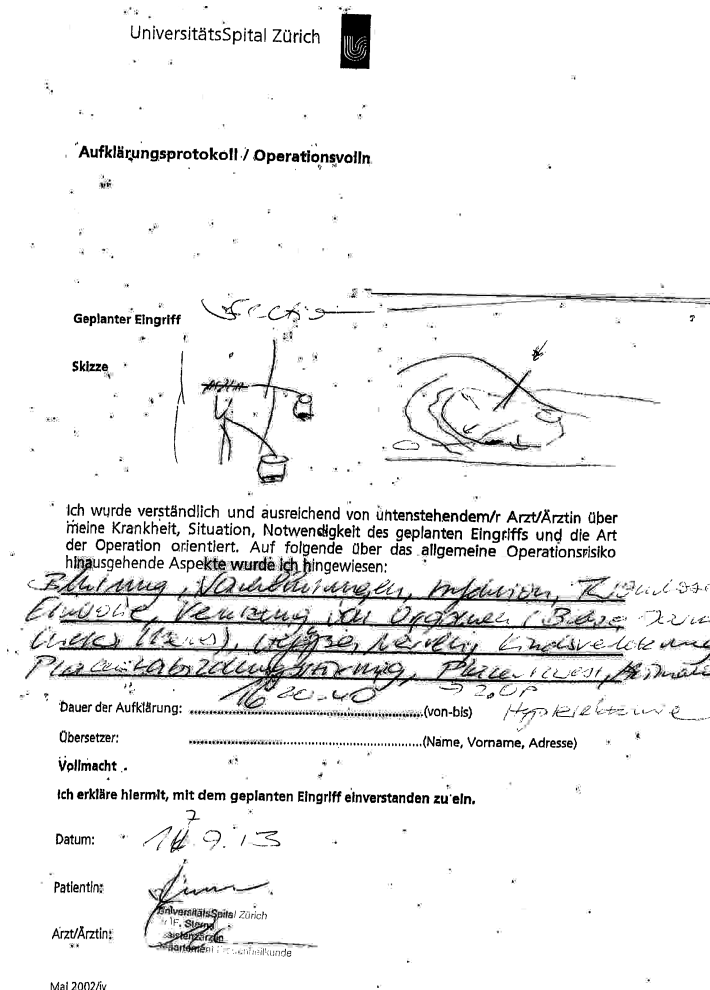 UniversitätsSpital Zürich
Aufklärungsprotokoll / Operationsvolln
Geplanter Eingriff Sectio
Skizze
Ich wurde verständlich und ausreichend von untenstehendem/r Arzt/Ärztin über
meine Krankheit, Situation, Notwendigkeit des geplanten Eingriffs und die Art
der Operation orientiert. Auf folgende über das allgemeine Operationsrisiko
hinausgehende Aspekte wurde ich hingewiesen:
Blutung, Nachblutungen, Infektion,
Embolie, Verletzung von Organen (Blase
Ureter, Gefässe, Nerven, Kindsverletzung
Plazentabildungsstörung,
Dauer der Aufklärung: 16 20-40 (von-bis) → 2.OP
Hysterektomie
Übersetzer: (Name, Vorname, Adresse)
Vollmacht
Ich erkläre hiermit, mit dem geplanten Eingriff einverstanden zu ein.
Datum: 17.9.13
Patientin:
UniversitätsSpital Zürich
F.
Assistenzärztin
Arzt/Ärztin:
Departement Frauenheilkunde
Mai 2002/iv